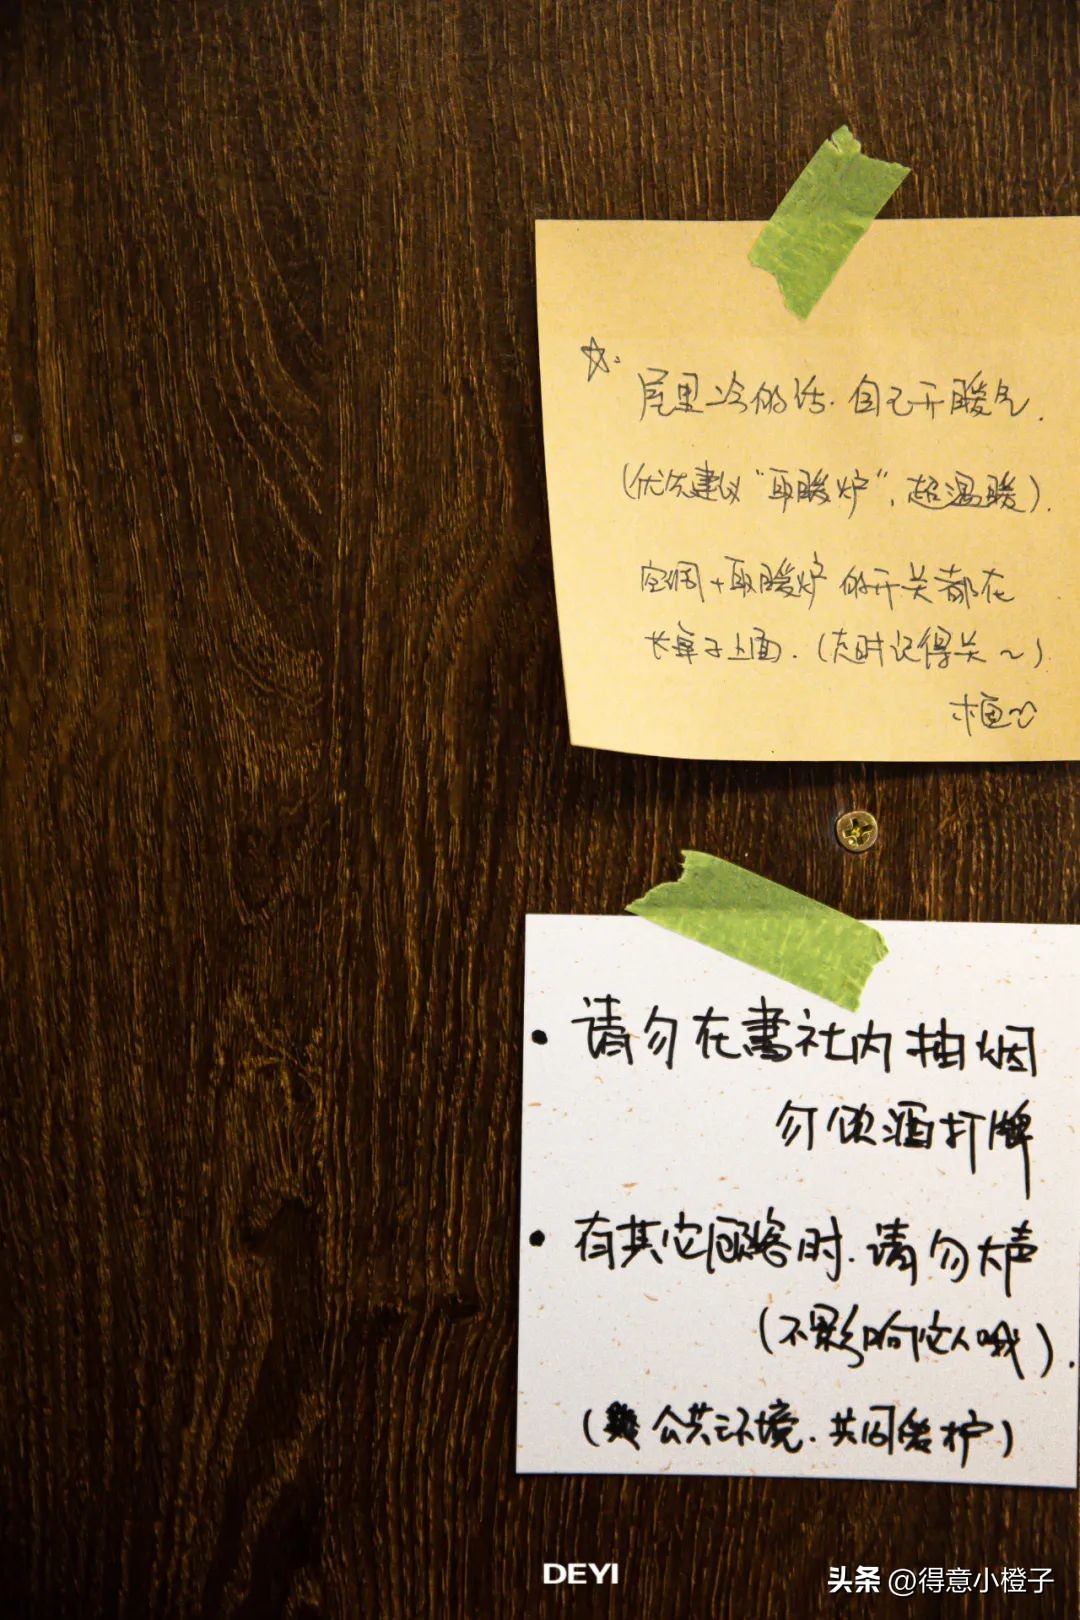 ☆. 屋里冷的话.自己开暖气.
(优先建议“取暖炉”,超温暖).
空调+取暖炉的开关都在
长桌子上面.(走时记得关~)
• 请勿在書社内抽烟
勿饮酒打牌
• 有其它顾客时.请勿大声
(不影响他人哦).
(公共环境.共同爱护)
DEYI
头条 @得意小橙子